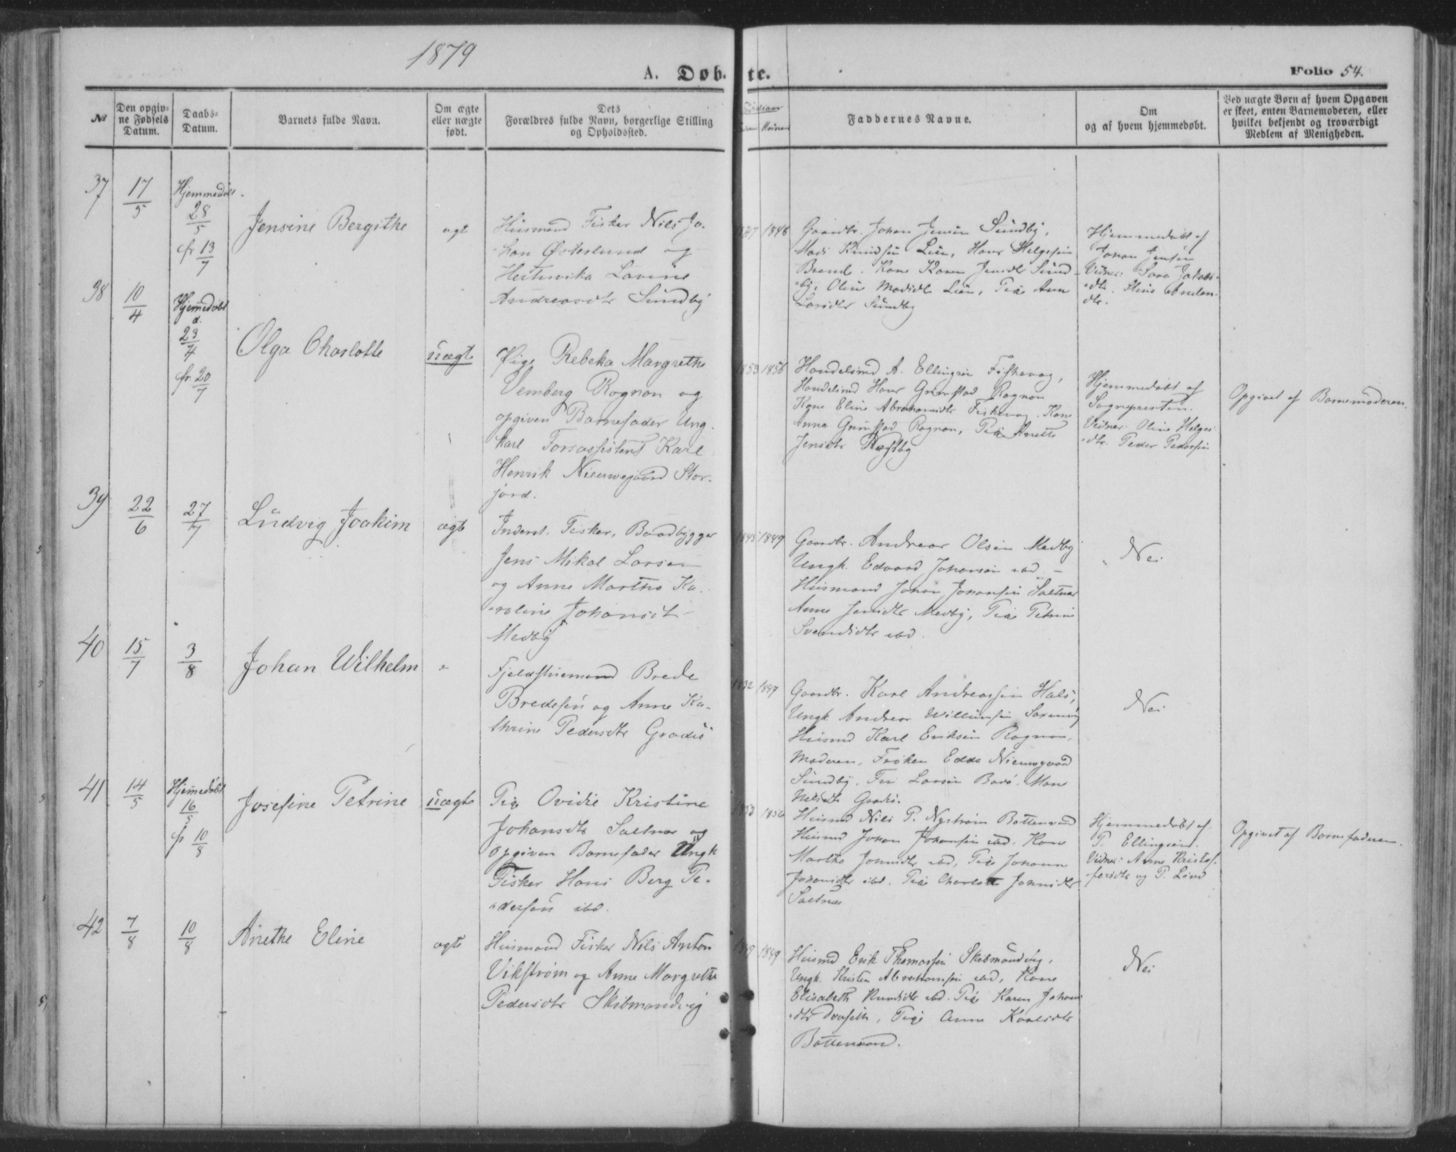 1879
A. Døbte.
Folio 54.
№
Den opgivne Fødsels Datum.
Daabs-Datum.
Barnets fulde Navn.
Om ægte eller uægte født.
Dets Forældres fulde Navn, borgerlige Stilling og Opholdssted.
Faddernes Navne.
Om og af hvem hjemmedøbt.
Ved uægte Børn af hvem Opgaven er skeet, enten Barnemoderen, eller hvilket bekjendt og troværdigt Medlem af Menigheden.
37
17/5
Hjemmedøbt
28/5
cfr 13/7
Jensine Bergithe
ægt
Huusmand Fisker Nils Jo-
han Østerlund og
Lavine
Andreasdtr Sundby
1848
Gaardbr. Johan Jensen Sundby,
Mads Knudsen Lien, Hans Helgesen
Kone Karen Jensdtr Sund-
by, Oline Madsdtr Lien, Pige Ane
Larsdtr Sundby
Hjemmedøbt af
Johan Jensen
Vidner: Sara Jakobs-
dtr.
38
10/4
Hjemmedøbt
d.
23/4
cfr. 20/7
Olga Charlotte
uægte
Pige Rebeka Margrethe
Vemberg Rognan og
opgiven Barnefader Ung-
karl Forstassistent Karl
Henrik Nieuwejaard Stor-
jord.
1853 1856
Handelsmd A. Ellingsen Fiskevag,
Handelsmd Hans Grønstad Rognan
Kone Eline Abrahamsdtr Fiskevag. Kone
Anna Grønstad Rognan, Pige Anette
Jensdtr
Hjemmedøbt af
Sognepresten.
Vidner: Oline Helges-
dtr. Peder Pedersen
Opgivet af Barnemoderen.
39
22/6
27/7
Ludvig Joakim
ægte
Inderst. Fisker, Baadbygger
Jens Mikal Larsen
og Anne Martha Ka-
roline Johansdt
Medby
1845 1849
Gaardbr. Andreas Olsen Medby
Ungk. Edvard Johansen ibd
Huusmand Johan Johansen Saltnes
Anne Jensdtr Medby, Pige Petrine
Svendsdtr ibd.
Nei
40
15/7
3/8
Johan Wilhelm
"
Fjeldhuusmand Brede
Bredesen og Anne Ka-
thrine Pedersdtr Gradis
1832 1847
Gaardbr. Karl Andreassen Hals,
Ungk Andreas Willumsen
Huusmd Karl Eriksen Rognan,
Moderen, Frøken Edda Nieuwejaard
Sundby.
Gradis.
Nei
41
14/5
Hjemmedøbt
16/5
cfr 10/8
Josefine Petrine
uægte
Pige Ovidie Kristine
Johansdtr Saltnes og
opgiven Barnefader Ungk
Fisker Hans Berg Pe-
dersen ibd.
1856
Huusmd Nils P. Nystrøm Bottenvand
Huusmd Johan Johansen ibd. Kone
Martha Jonsdtr ibd, Pige Johanna
Johansdtr ibd. Pige Charlotte Johansdtr
Saltnes
Hjemmedøbt af
P. Ellingsen.
Vidner: Anne Kristof-
fersdtr og P. Lund
Opgivet af Barnefaderen.
42
7/8
10/8
Anethe Eline
ægte
Huusmand Fisker Nils Anton
Vikstrøm og Anne Margrethe
Pedersdtr Skibmandvig
1849 1849
Huusmd Erik Thomassen Skibmandvig,
Ungk. Kristen Abrahamsen ibd, Kone
Elisabeth Knudsdtr ibd. Pige Karen Johans-
dtr Drafslette, Pige Anne Karlsdtr
Bottenvand.
Nei